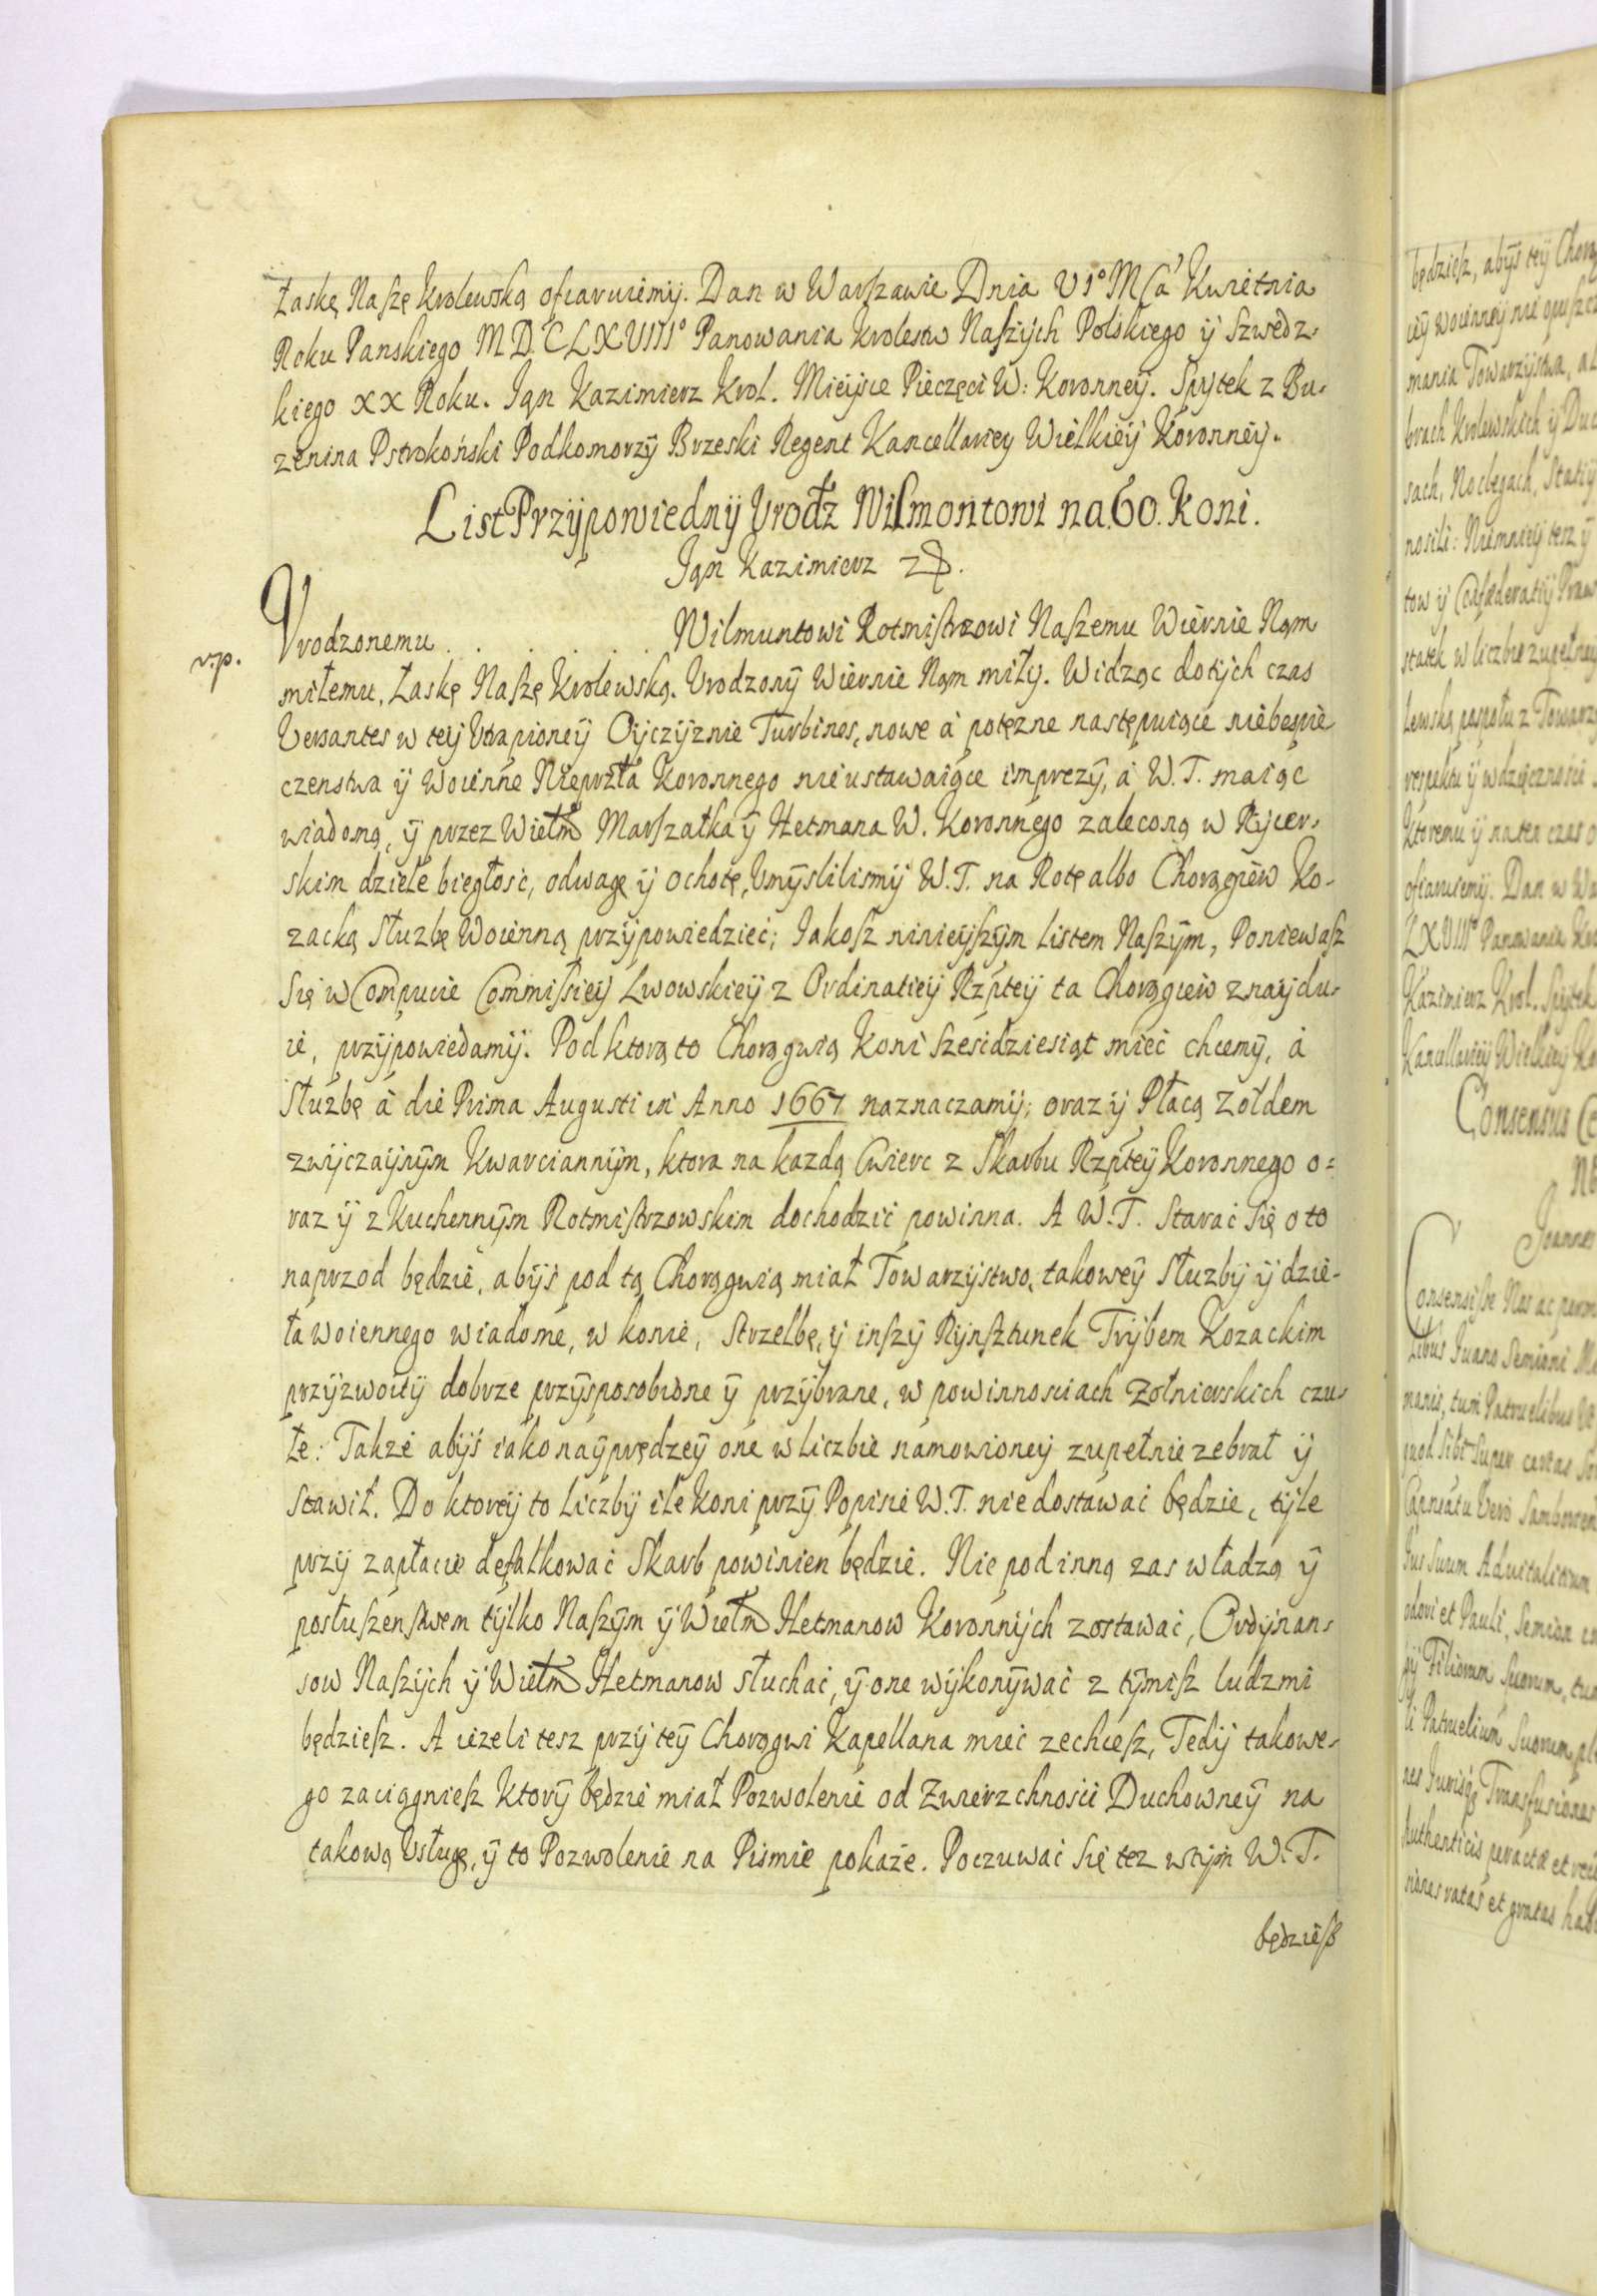 Łaskę Naszę Krolewską ofiaruiemÿ. Dan w Warszawie Dnia VI° Mca Kwietnia
Roku Panskiego M.D.C.LXVIII° Panowania Krolestw Naszÿch Polskiego ÿ Szwedz-
kiego XX Roku. Ian Kazimierz Krol. Mieÿsce Pieczęci W: Koronneÿ. Spÿtek z Bu-
zenina Pstrokoński Podkomorzÿ Brzeski Regent Kancellariey Wielkieÿ Koronneÿ.
List Przÿpowiednÿ Vrodz Wilmontowi na 60. Koni.
Ian Kazimierz
v.p.
Vrodzonemu . . . . . Wilmuntowi Rotmistrzowi Naszemu Wiernie Nam
miłemu, Łaskę Naszę Krolewską. Vrodzonÿ Wiernie Nam miłÿ. Widząc dotÿch czas
Versantes w teÿ Vtrapioneÿ Oÿczÿznie Turbines, nowe á potęzne następuiące niebespie
czenstwa ÿ Woienne Nieprzła Koronnego nieustawaiące imprezÿ, á W.T. maiąc
wiadomą, ÿ przez Wielm Marszałka ÿ Hetmana W. Koronnego zaleconą w Rÿcer-
skim dziele biegłosc, odwagę ÿ ochotę, Vmÿslilismÿ W.T. na Rotę albo Chorągiew Ko-
zacką Służbę Woienną przÿpowiedziec; Iakosz ninieÿszÿm Listem Naszÿm, Poniewasz
Się w Compucie Commissieÿ Lwowskieÿ z Ordinatieÿ Rzpteÿ ta Chorągiew znaÿdu-
ie, przÿpowiedamÿ. Pod ktorą to Chorągwią Koni szescdziesiąt miec chcemÿ, á
Służbę á die Prima Augusti in Anno 1667 naznaczamÿ; oraz ÿ Płacą Zołdem
zwÿczaÿnÿm Kwarciannÿm, ktora na kazdą Cwierc z Skarbu Rzpteÿ Koronnego o-
raz ÿ z Kuchennÿm Rotmistrzowskim dochodzic powinna. A W.T. Starac Się o to
naprzod będzie, abÿś pod tą Chorągwią miał Towarzÿstwo, takoweÿ Służbÿ ÿ dzie-
ła woiennego wiadome, w konie, Strzelbę, ÿ inszÿ Rÿnsztunek Trÿbem Kozackim
przÿzwoitÿ dobrze przÿsposobione ÿ przÿbrane, w powinnosciach Zołnierskich czu-
łe: Takze abÿś iako naÿprędzeÿ one w liczbie namowioneÿ zupełnie zebrał ÿ
Stawił. Do ktoreÿ to Liczbÿ ile Koni przÿ Popisie W.T. niedostawać będzie, tÿle
przÿ zapłacie defalkować Skarb powinien będzie. Nie pod inną zas władzą ÿ
posłuszenstwem tÿlko Naszÿm ÿ Wielm Hetmanow Koronnÿch zostawać, Ordÿnan-
sow Naszÿch ÿ Wielm Hetmanow słuchać, ÿ one wÿkonÿwać z tÿmisz ludzmi
będziesz. A iezeli tesz przÿ teÿ Chorągwi Kapellana mieć zechcesz, Tedÿ takowe-
go zaciągniesz ktorÿ będzie miał Pozwolenie od Zwierzchnosci Duchowneÿ na
takową Vsługę, ÿ to Pozwolenie na Pismie pokaże. Poczuwać Się tez w tÿm W.T.
będziesz